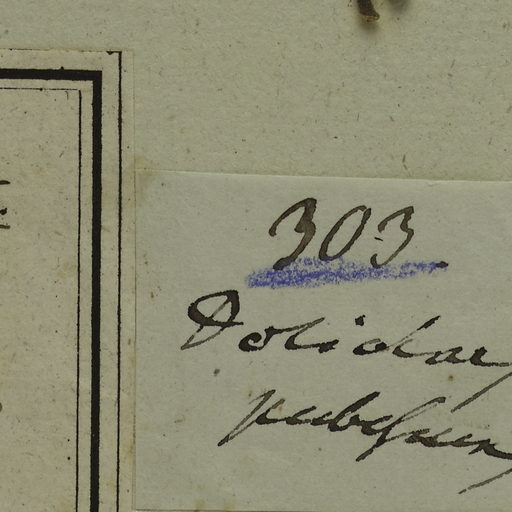 303.
Dolichar
pubescen